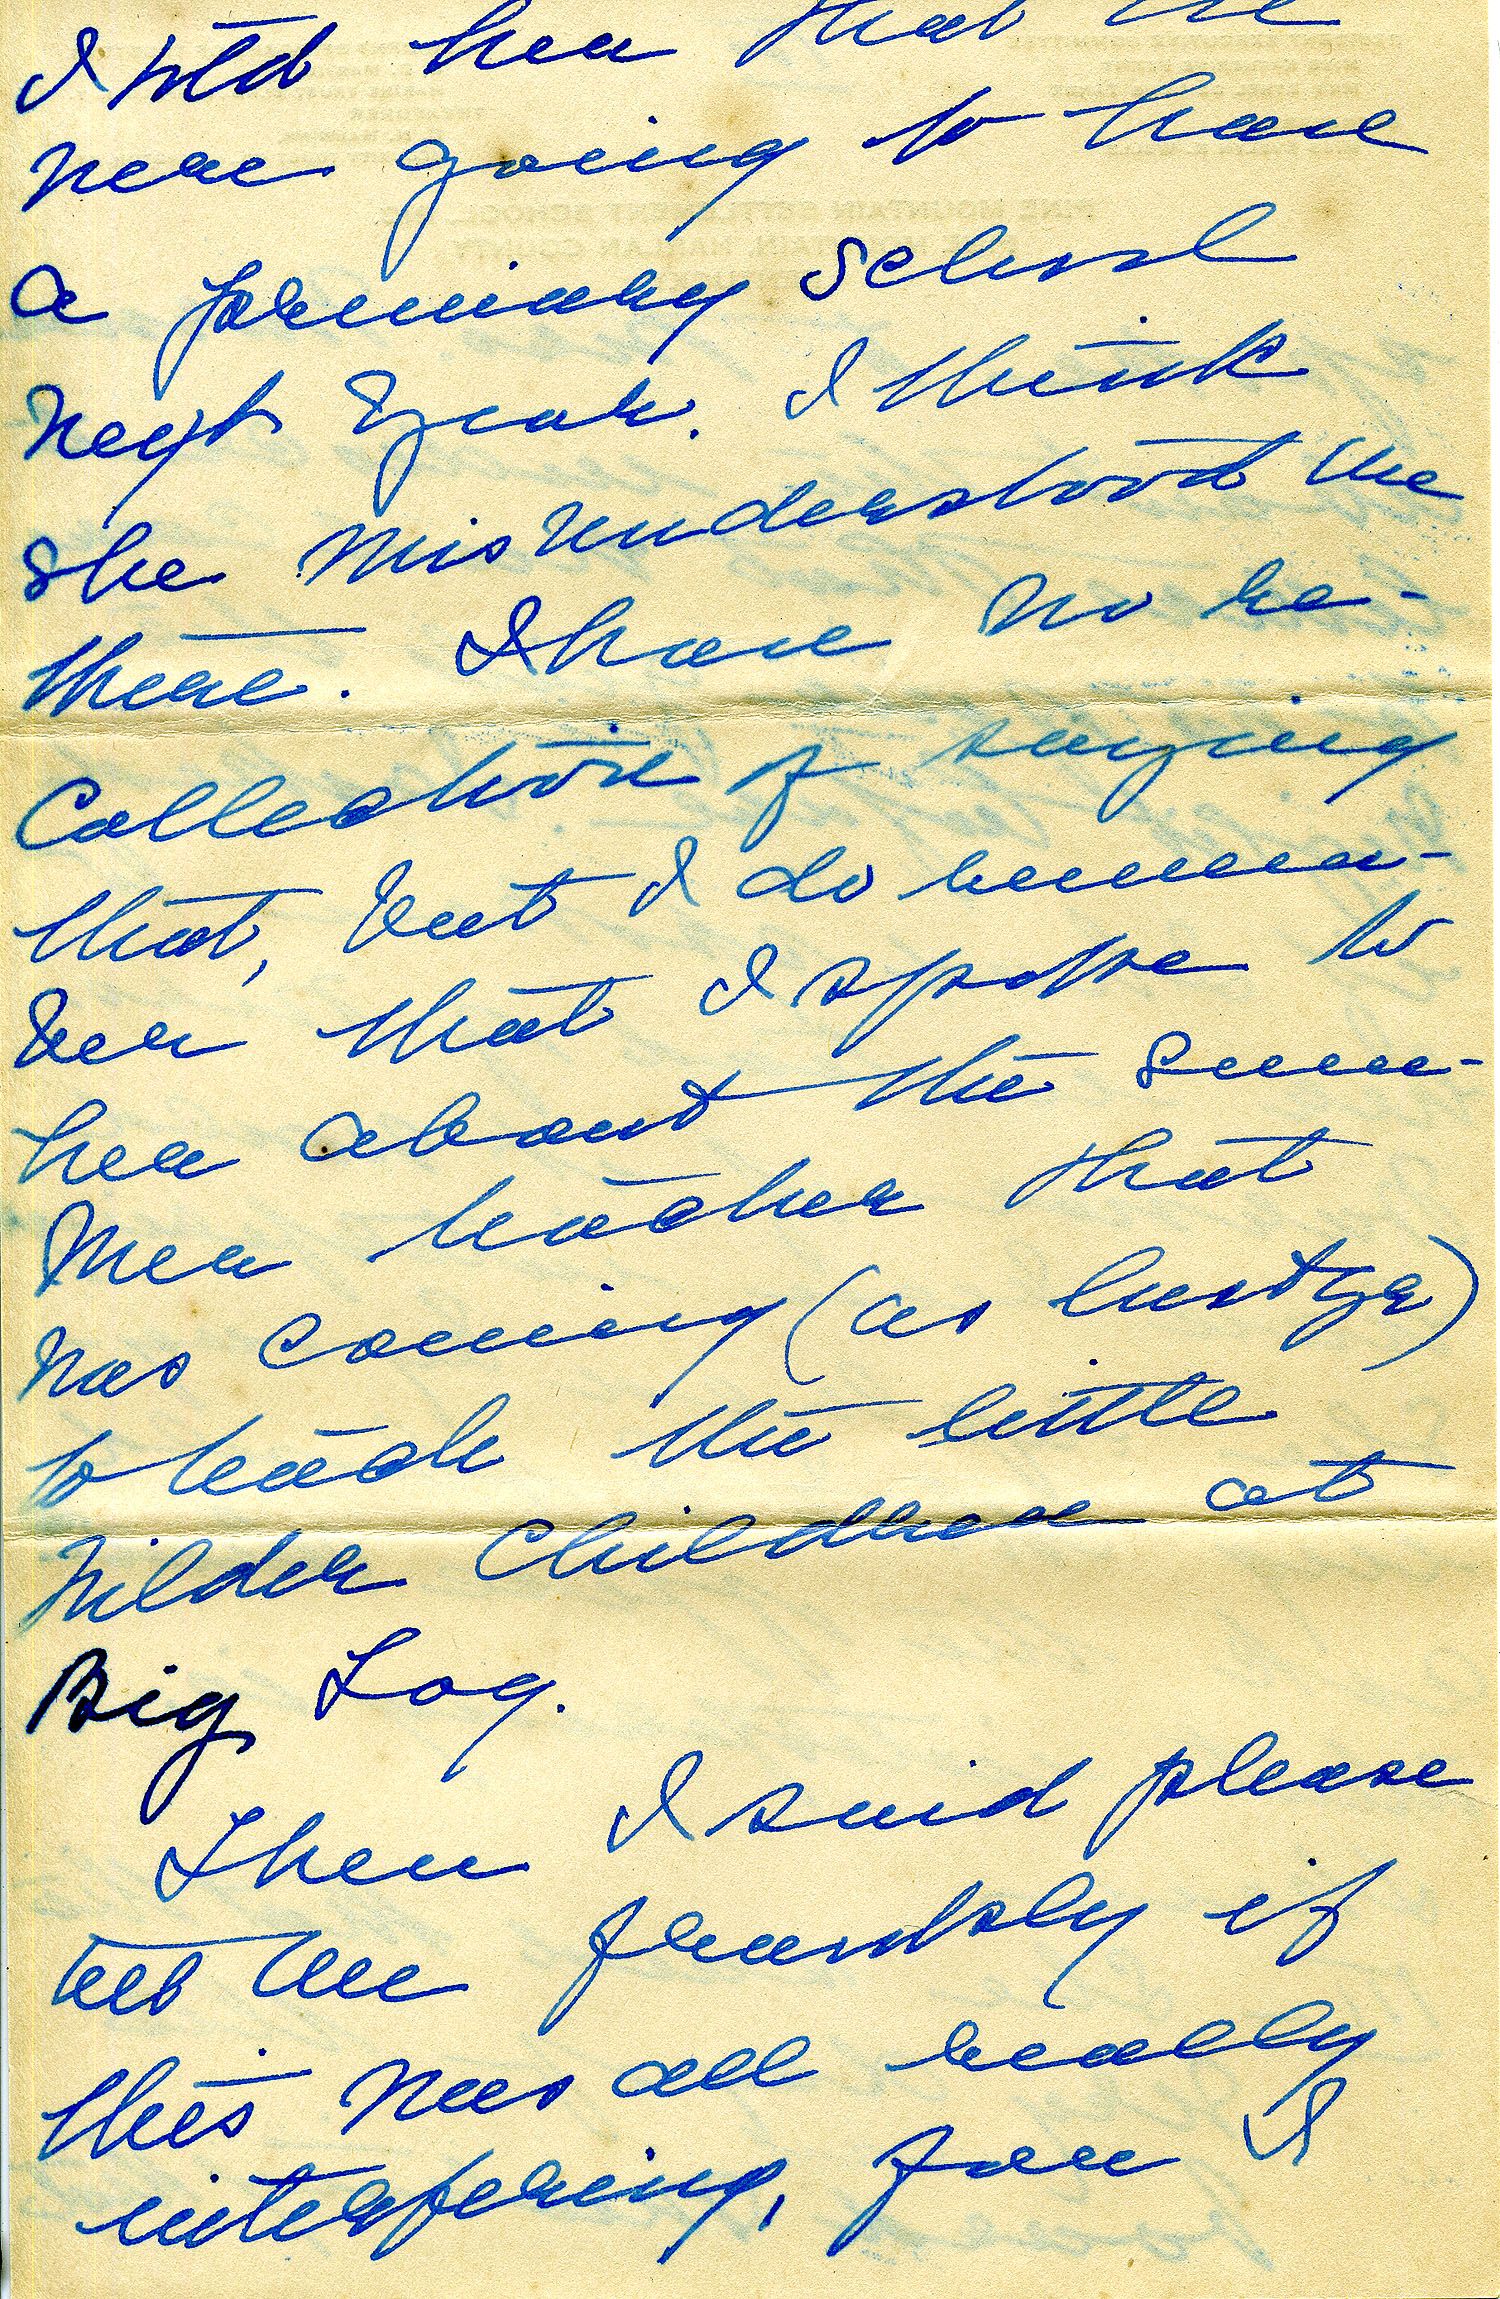 I told her that we
were going to have
a primary school
next year. I think
she misunderstood me
there. I have no re-
collection of saying
that, but I do remem-
ber that I spoke to
her about the sum-
mer teacher that
was coming (as last yr)
to teach the little
Wilder children at
Big Log.
Then I said please
tell me frankly if
this was all really
interfering, for I
PINE MOUNTAIN SETTLEMENT SCHOOL